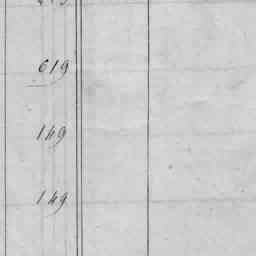 619
149
149